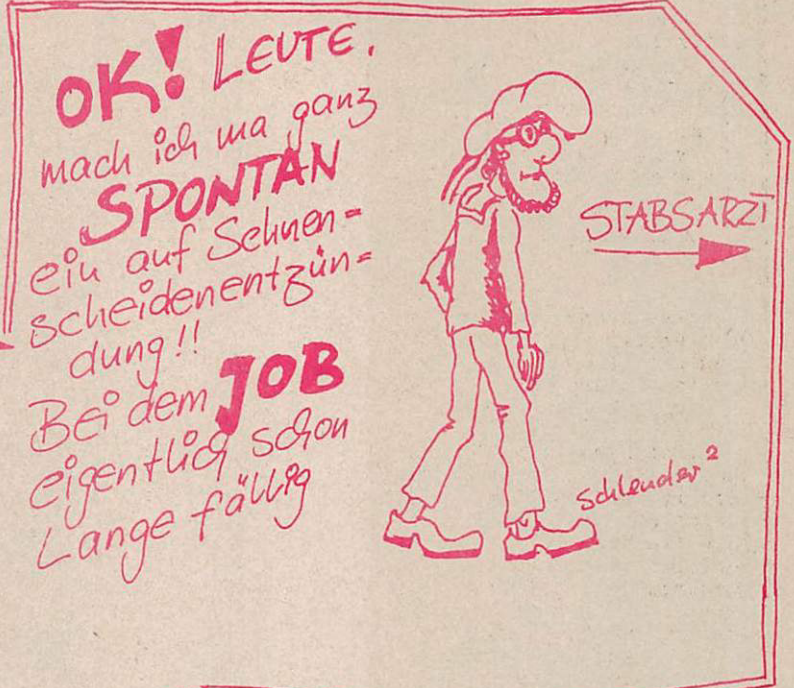 OK! LEUTE,
mach ich ma ganz
SPONTAN
ein auf Sehnen=
scheidenentzün=
dung!!
Bei dem JOB
eigentlich schon
Lange fällig
STABSARZT
schlender²